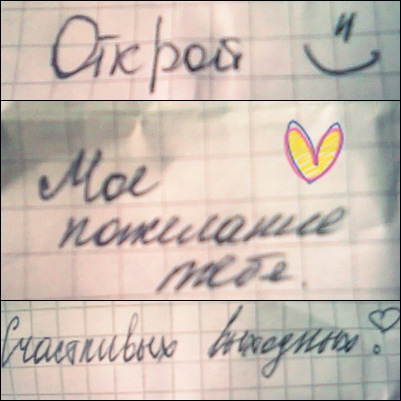 Открой
Мое
пожелание
тебе.
Счастливых выходных!